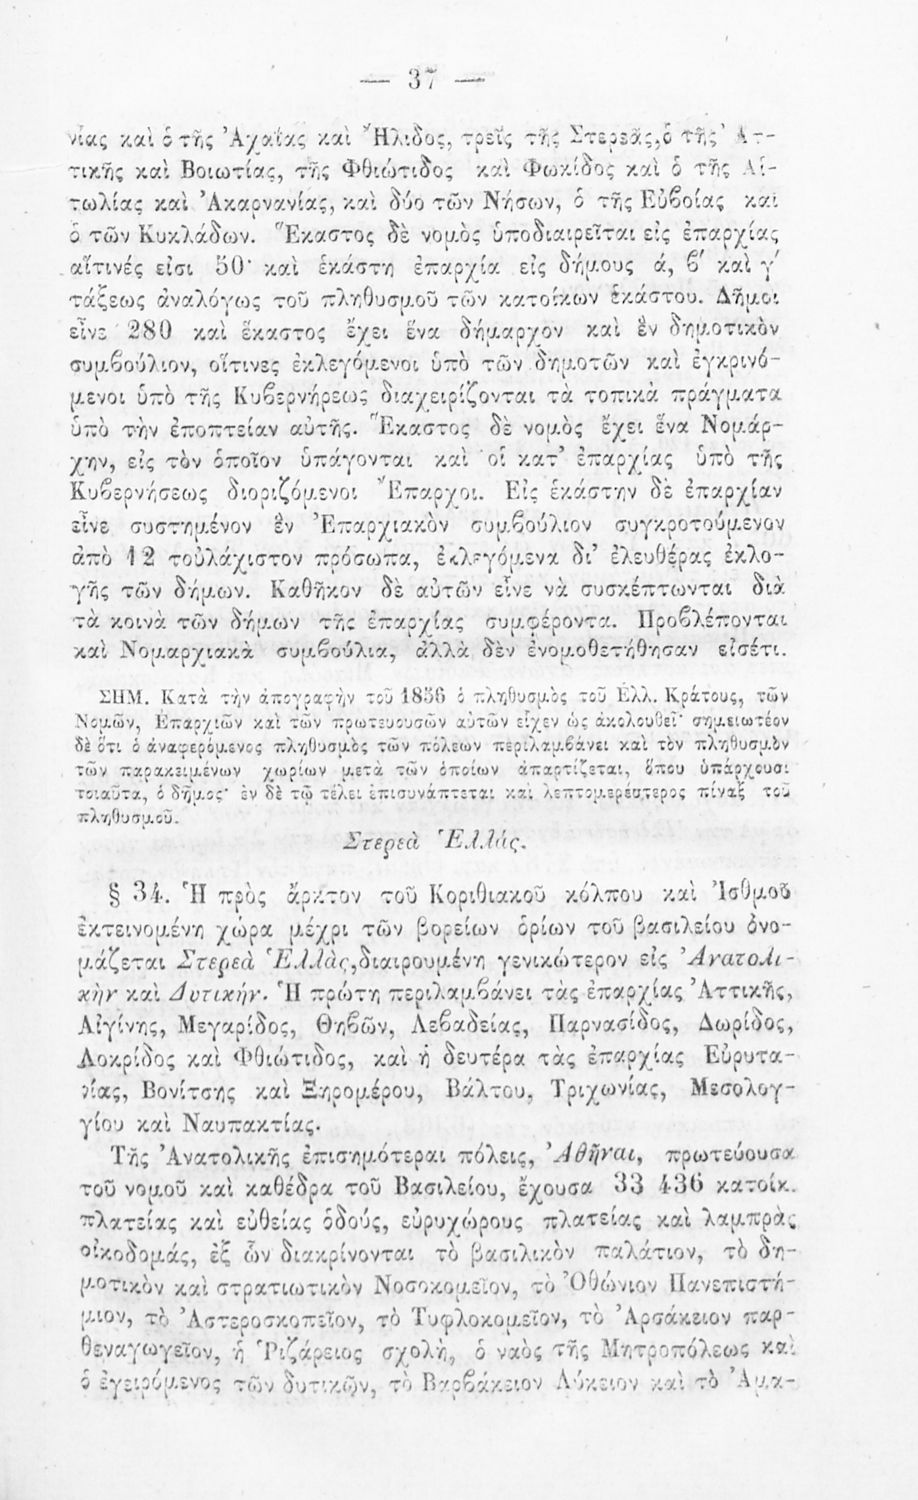 — 37 —
νίας καὶ ὁ τῆς Ἀχαΐας καὶ Ἤλιδος, τρεῖς τῆς Στερεᾶς, ὁ τῆς Ἀτ-
τικῆς καὶ Βοιωτίας, τῆς Φθιώτιδος καὶ Φωκίδος καὶ ὁ τῆς Αἰ-
τωλίας καὶ Ἀκαρνανίας, καὶ δύο τῶν Νήσων, ὁ τῆς Εὐβοίας καὶ
ὁ τῶν Κυκλάδων. Ἕκαστος δὲ νομὸς ὑποδιαιρεῖται εἰς ἐπαρχίας
αἵτινές εἰσι 50· καὶ ἑκάστη ἐπαρχία εἰς δήμους ά, β′ καὶ γ′
τάξεως ἀναλόγως τοῦ πληθυσμοῦ τῶν κατοίκων ἑκάστου. Δῆμοι
εἶνε 280 καὶ ἕκαστος ἔχει ἕνα δήμαρχον καὶ ἓν δημοτικὸν
συμβούλιον, οἵτινες ἐκλεγόμενοι ὑπὸ τῶν δημοτῶν καὶ ἐγκρινό-
μενοι ὑπὸ τῆς Κυβερνήρεως διαχειρίζονται τὰ τοπικὰ πράγματα
ὑπὸ τὴν ἐποπτείαν αὐτῆς. Ἕκαστος δὲ νομὸς ἔχει ἕνα Νομάρ-
χην, εἰς τὸν ὁποῖον ὑπάγονται καὶ οἱ κατ’ ἐπαρχίας ὑπὸ τῆς
Κυβερνήσεως διοριζόμενοι Ἔπαρχοι. Εἰς ἑκάστην δὲ ἐπαρχίαν
εἶνε συστημένον ἓν Ἐπαρχιακὸν συμβούλιον συγκροτούμενον
ἀπὸ 12 τοὐλάχιστον πρόσωπα, ἐκλεγόμενα δι’ ἐλευθέρας ἐκλο-
γῆς τῶν δήμων. Καθῆκον δὲ αὐτῶν εἶνε νὰ συσκέπτωνται διὰ
τὰ κοινὰ τῶν δήμων τῆς ἐπαρχίας συμφέροντα. Προβλέπονται
καὶ Νομαρχιακὰ συμβούλια, ἀλλὰ δὲν ἐνομοθετήθησαν εἰσέτι.
ΣΗΜ. Κατὰ τὴν ἀπογραφὴν τοῦ 1856 ὁ πληθυσμὸς τοῦ Ἑλλ. Κράτους, τῶν
Νομῶν, Ἐπαρχιῶν καὶ τῶν πρωτευουσῶν αὐτῶν εἶχεν ὡς ἀκολουθεῖ· σημειωτέον
δὲ ὅτι ὁ ἀναφερόμενος πληθυσμὸς τῶν πόλεων περιλαμβάνει καὶ τὸν πληθυσμὸν
τῶν παρακειμένων χωρίων μετὰ τῶν ὁποίων ἀπαρτίζεται, ὅπου ὑπάρχουσι
τοιαῦτα, ὁ δῆμος· ἐν δὲ τῷ τέλει ἐπισυνάπτεται καὶ λεπτομερέστερος πίναξ τοῦ
πληθυσμοῦ.
Στερεὰ Ἑλλάς.
§ 34. Ἡ πρὸς ἄρκτον τοῦ Κοριθιακοῦ κόλπου καὶ Ἰσθμοῦ
ἐκτεινομένη χώρα μέχρι τῶν βορείων ὁρίων τοῦ βασιλείου ὀνο-
μάζεται Στερεὰ Ἑλλὰς, διαιρουμένη γενικώτερον εἰς Ἀνατολι-
κὴν καὶ Δυτικήν. Ἡ πρώτη περιλαμβάνει τὰς ἐπαρχίας Ἀττικῆς,
Αἰγίνης, Μεγαρίδος, Θηβῶν, Λεβαδείας, Παρνασίδος, Δωρίδος,
Λοκρίδος καὶ Φθιώτιδος, καὶ ἡ δευτέρα τὰς ἐπαρχίας Εὐρυτα-
νίας, Βονίτσης καὶ Ξηρομέρου, Βάλτου, Τριχωνίας, Μεσολογ-
γίου καὶ Ναυπακτίας.
Τῆς Ἀνατολικῆς ἐπισημότεραι πόλεις, Ἀθῆναι, πρωτεύουσα
τοῦ νομοῦ καὶ καθέδρα τοῦ Βασιλείου, ἔχουσα 33 436 κατοίκ.
πλατείας καὶ εὐθείας ὁδούς, εὐρυχώρους πλατείας καὶ λαμπρὰς
οἰκοδομάς, ἐξ ὧν διακρίνονται τὸ βασιλικὸν παλάτιον, τὸ δη-
μοτικὸν καὶ στρατιωτικὸν Νοσοκομεῖον, τὸ Ὀθώνιον Πανεπιστή-
μιον, τὸ Ἀστεροσκοπεῖον, τὸ Τυφλοκομεῖον, τὸ Ἀρσάκειον παρ-
θεναγωγεῖον, ἡ Ῥιζάρειος σχολὴ, ὁ ναὸς τῆς Μητροπόλεως καὶ
ὁ ἐγειρόμενος τῶν δυτικῶν, τὸ Βαρβάκειον Λύκειον καὶ τὸ Ἀμα-